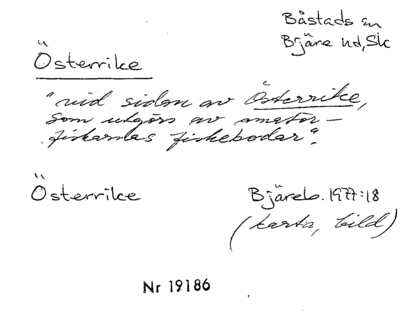 Båstads sn
Bjäre hd, Sk
Österrike
"vid sidan av Österrike,
som utgörs av amatör-
fiskarnas fiskebodar".
Österrike
Bjäreb. 1977:18
(karta, bild)
Nr 19186